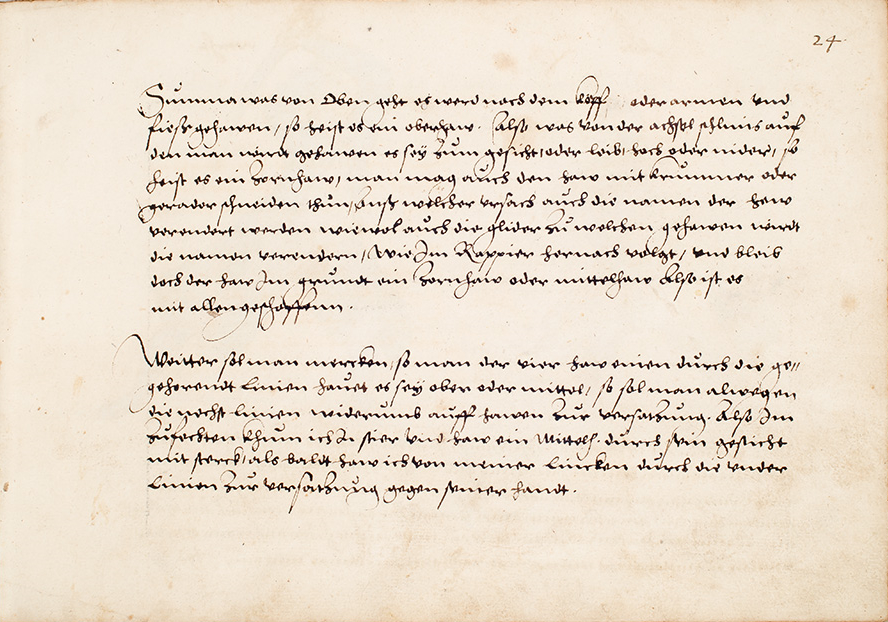 24
Summa was von Oben geht es werd nach dem kopff oder armen vnd
fiess gehawen, so heist es ein oberhaw. Also was von der achssl schlims auf
den man wirdt gehawen es seÿ zum gesicht, oder leib, hoch oder nider, so
heist es ein Zornhaw, man mag auch den haw mit krummer oder
gerader schneiden thun, Auss welcher vrsach auch die namen der hew
verendert werden wiewol auch die glider zu welchen gehawen wirdt
die namen verendern, Wie Im Rappier hernach volgt, vnd bleib
doch der haw Im grundt ein Zornhaw oder mittelhaw Also ist es
mit allen geschaffenn.
Weitter sol man mercken, so man der vier haw einen durch die ge-
gehorendt Linien hauet es seÿ ober oder mittel, so sol man alwegen
die nechst linien widerumb auff hawen zur versatzung. Also Im
zufechten khum ich In stier vnd haw ein Mittelh. durch sein gesicht
mit sterck, als baldt haw ich von meiner Lincken durch die vnder
Linien zur versatzung gegen seiner handt.